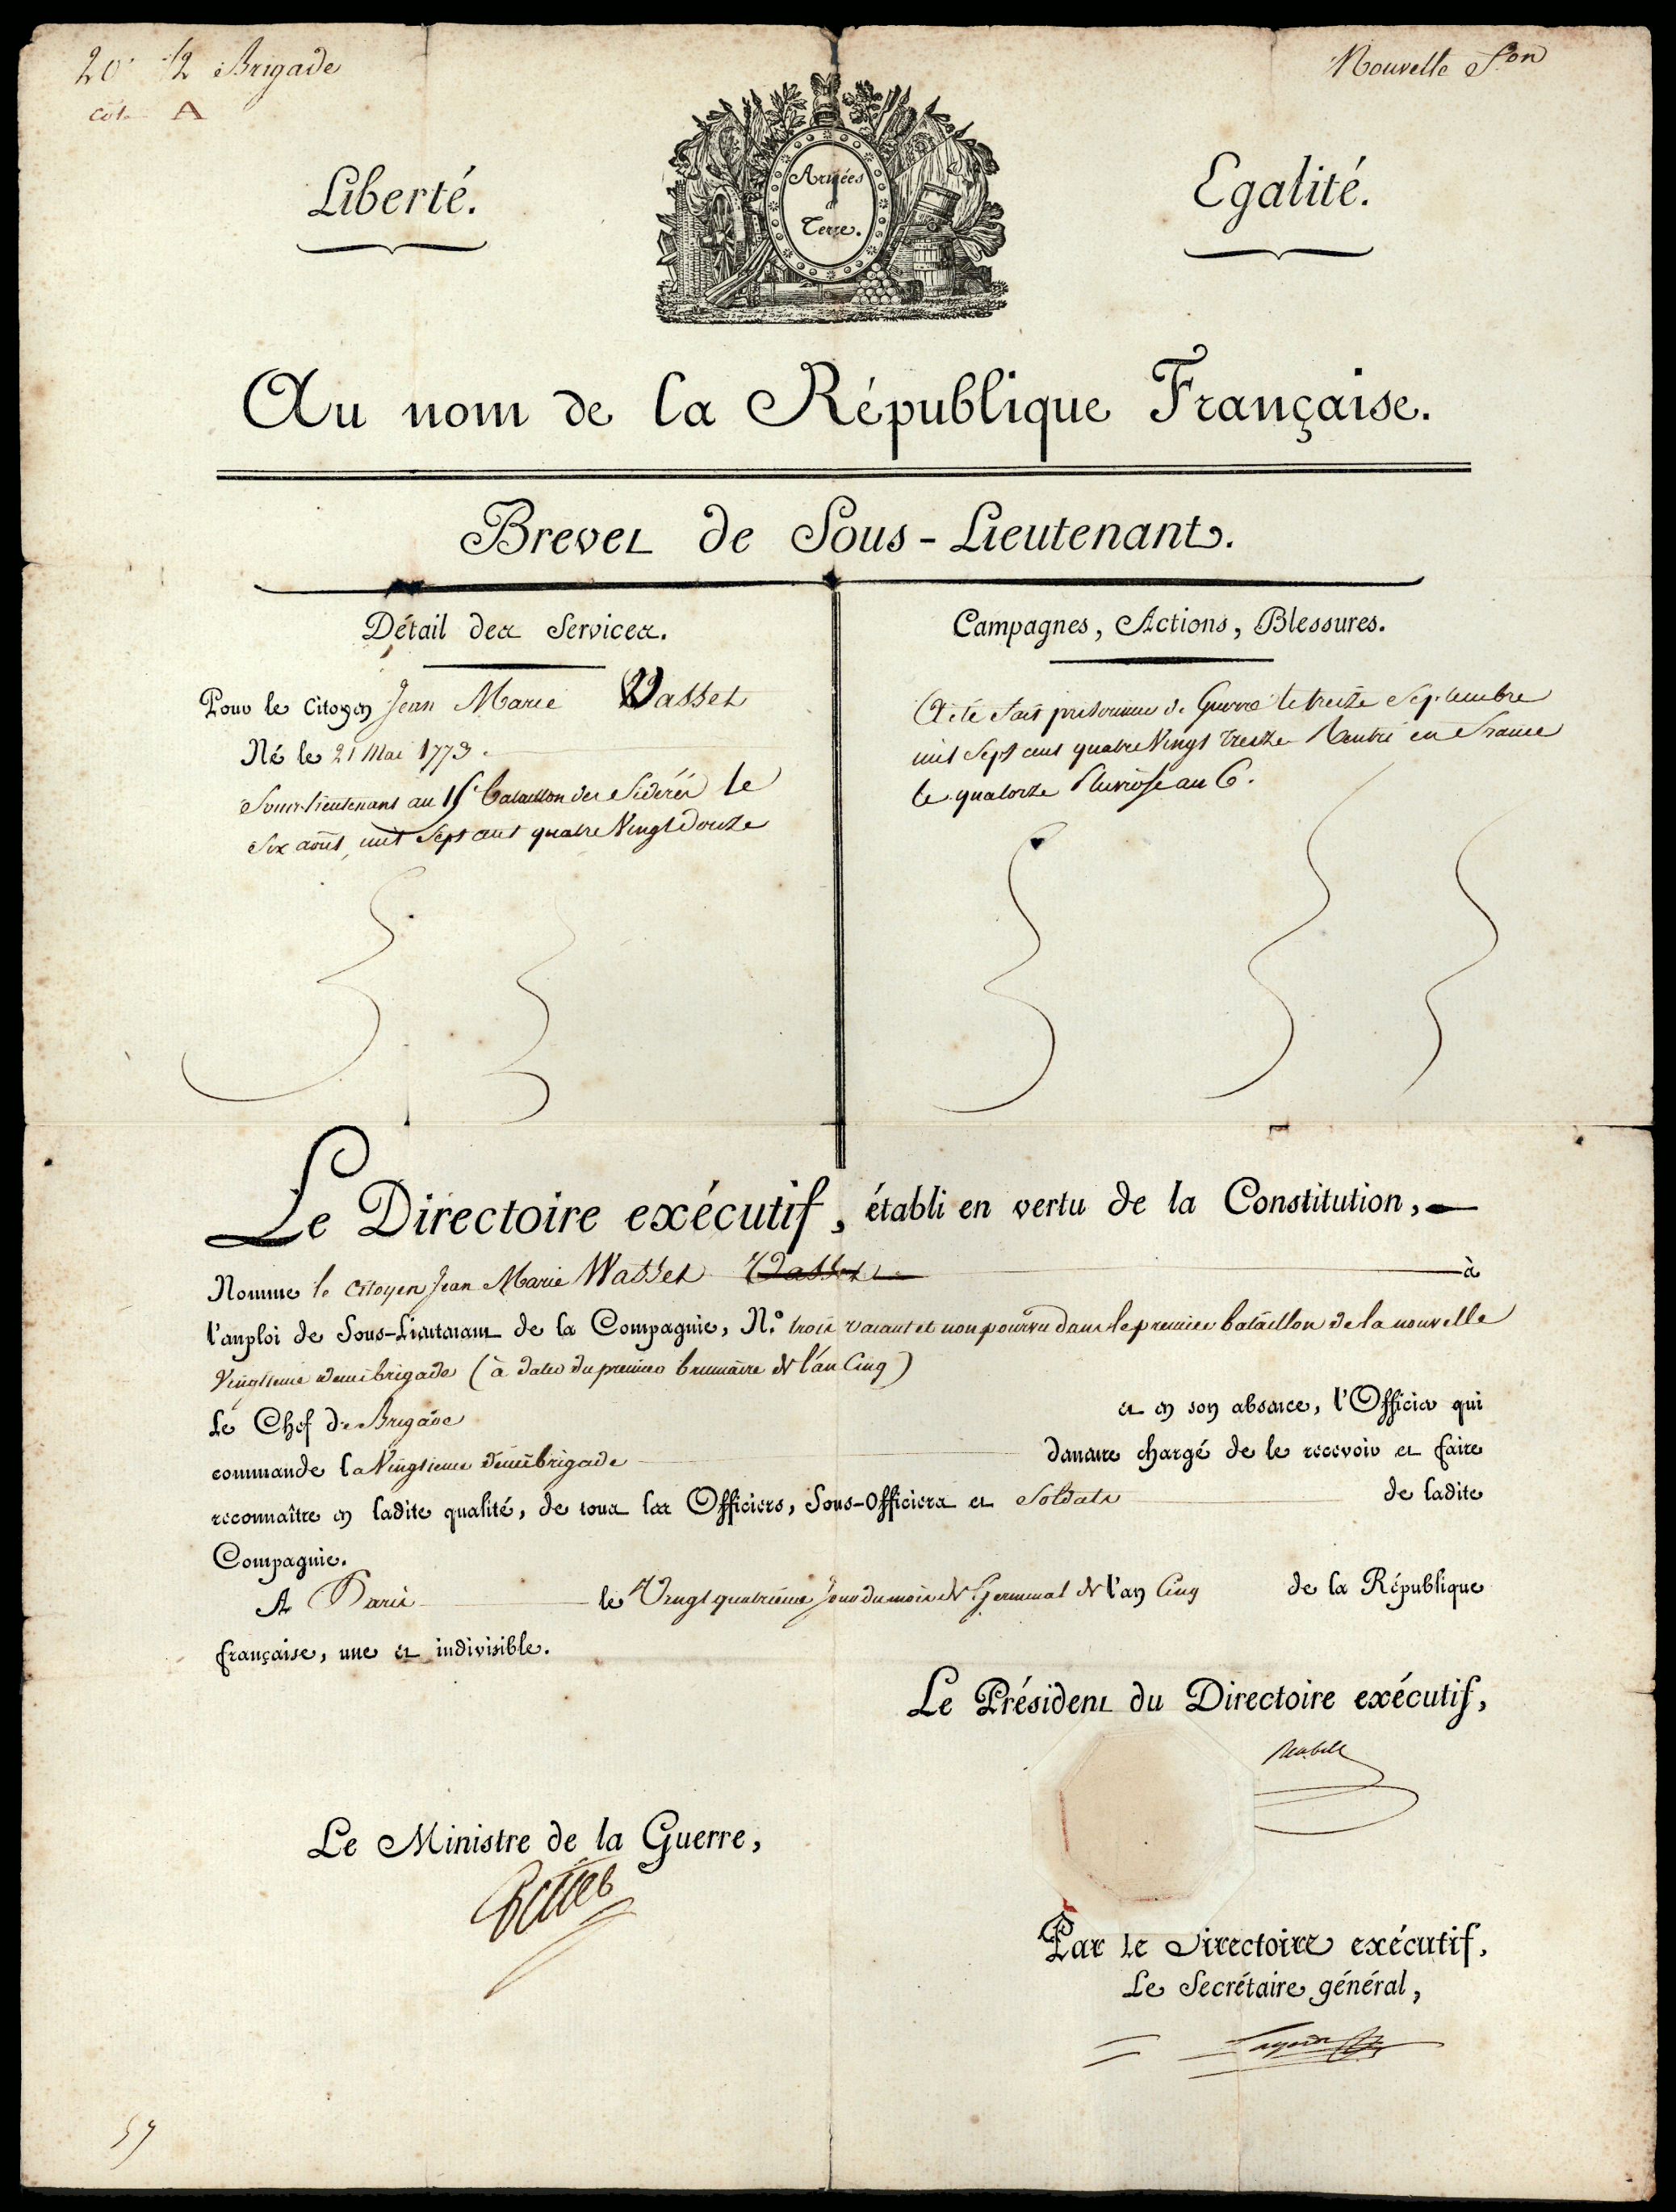 20e 1/2 Brigade
Nouvelle f.on
A
Liberté.
Armées
d
Terre.
Egalité.
Au nom de la République Française.
Brevet de Sous-Lieutenant.
Détail des Services.
Pour le Citoyen Jean Marie Wasset
Né le 21 Mai 1773.
Sous-lieutenant au 15e bataillon des fédérés le
Six août, mil Sept cent quatre Vingt Douze
Campagnes, Actions, Blessures.
A été fait prisonnier de Guerre le treize Septembre
mil Sept cent quatre Vingt treize Rentré en France
le quatorze Pluviose an 6.
Le Directoire exécutif, établi en vertu de la Constitution,
Nomme le Citoyen Jean Marie Wasset Wasset à
l'emploi de Sous-Lieutenant de la Compagnie, N.º trois vacant et non pourvu dans le premier bataillon de la nouvelle
Vingtieme demi brigade (à dater du premier brumaire de l'an Cinq)
Le Chef de Brigade et en son absence, l'Officier qui
commande la Vingtieme demi brigade demeure chargé de le recevoir et faire
reconnaître en ladite qualité, de tous les Officiers, Sous-Officiers et Soldats de ladite
Compagnie.
A Paris le Vingt quatrieme Jour du mois de Germinal de l'an Cinq de la République
française, une et indivisible.
Le Président du Directoire exécutif,
Reubell
Le Ministre de la Guerre,
Petiet
Par le Directoire exécutif,
Le Secrétaire général,
Lagarde
57